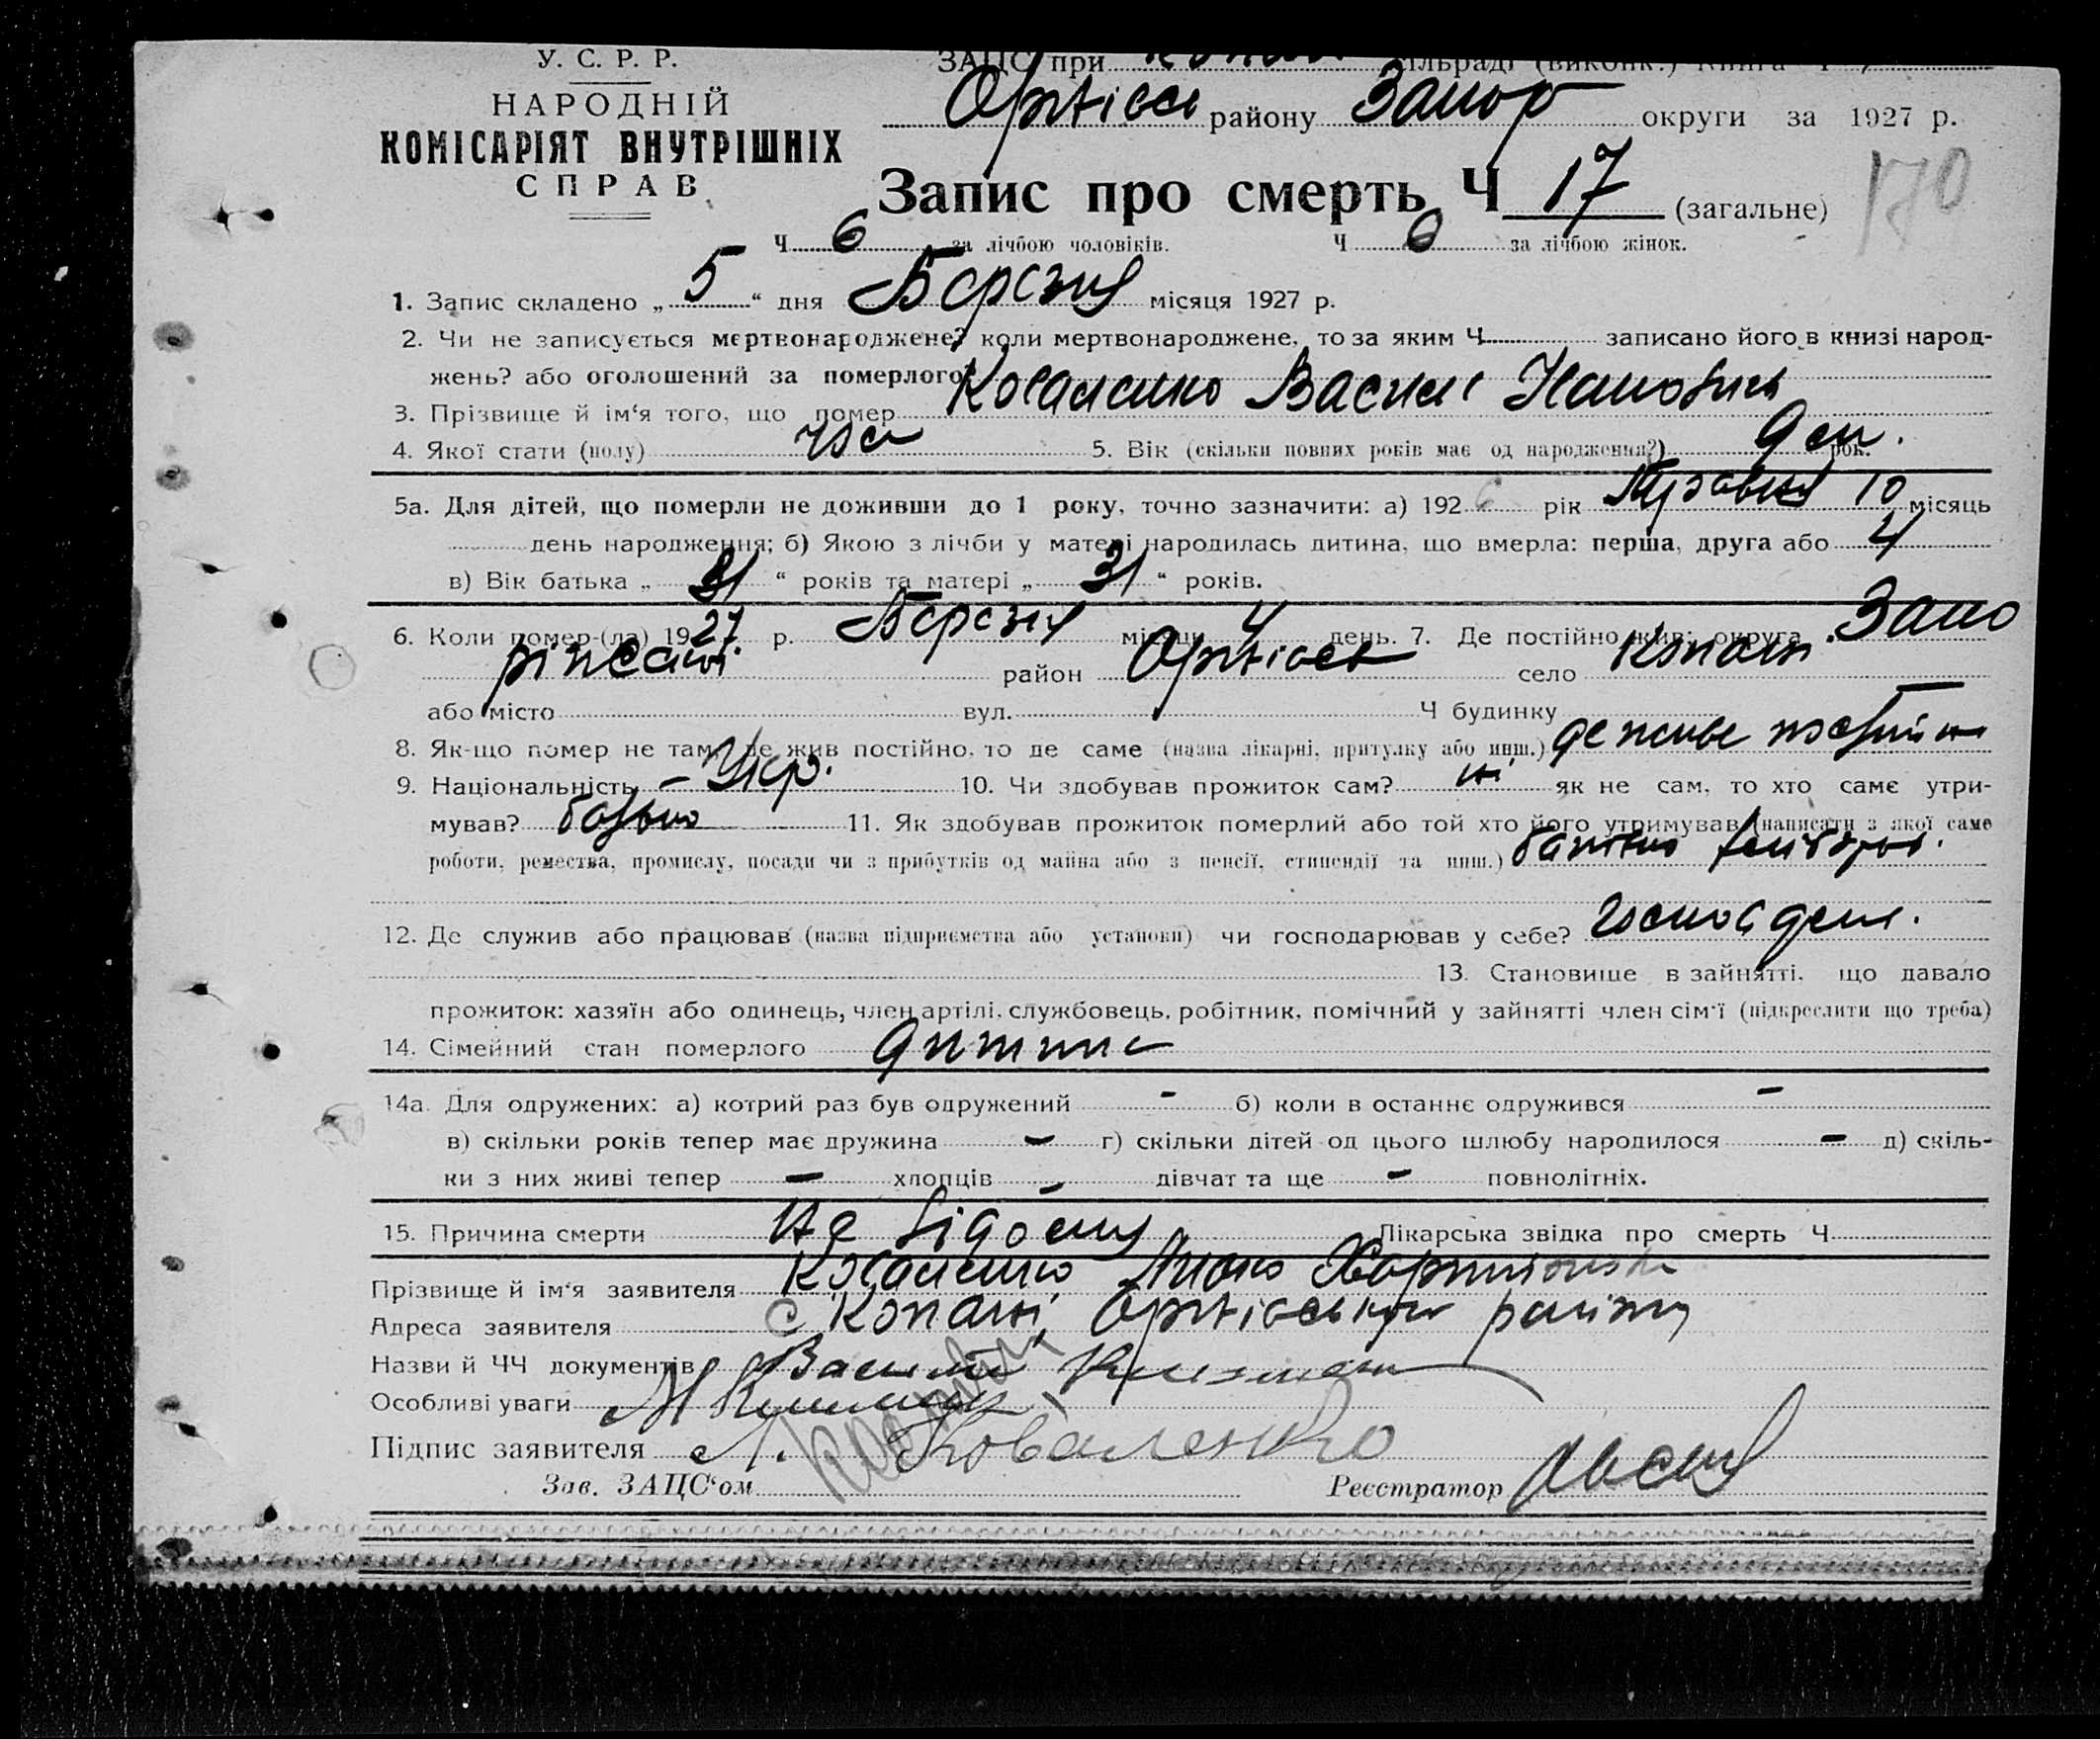 У. С. Р. Р.
НАРОДНІЙ
КОМІСАРІЯТ ВНУТРІШНІХ
СПРАВ
ЗАЦС при Копан сільраді (виконк.) Книга Ч
району Запор округи за 1927 р.
Запис про смерть Ч 17 (загальне)
170
Ч 6 за лічбою чоловіків. Ч 6 за лічбою жінок.
1. Запис складено „ 5 “ дня Березня місяця 1927 р.
2. Чи не записується мертвонароджене? коли мертвонароджене, то за яким Ч записано його в книзі народ-
жень? або оголошений за померлого
3. Прізвище й ім‘я того, що помер Коваленко Василь
4. Якої стати (полу) 5. Вік (скільки повних років має од народження?) рок.
5а. Для дітей, що померли не доживши до 1 року, точно зазначити: а) 192 6 рік Травня 10 місяць
день народження; б) Якою з лічби у матері народилась дитина, що вмерла: перша, друга або 4
в) Вік батька „ 31 “ років та матері „ 31 “ років.
6. Коли помер-(ла) 1927 р. Березня місяць 4 день. 7. Де постійно жив: округа Запо
район село Копані
або місто вул. Ч будинку
8. Як-що помер не там, де жив постійно, то де саме (назва лікарні, притулку або инш.) де живе постійно
9. Національність – Укр. 10. Чи здобував прожиток сам? ні як не сам, то хто саме утри-
мував? батько 11. Як здобував прожиток померлий або той хто його утримував (написати з якої саме
роботи, ремества, промислу, посади чи з прибутків од майна або з пенсії, стипендії та инш.)
12. Де служив або працював (назва підприємства або установи) чи господарював у себе?
13. Становище в зайнятті, що давало
прожиток: хазяїн або одинець, член артілі, службовець, робітник, помічний у зайнятті член сім‘ї (підкреслити що треба)
14. Сімейний стан померлого дитина
14а. Для одружених: а) котрий раз був одружений - б) коли в останнє одружився -
в) скільки років тепер має дружина - г) скільки дітей од цього шлюбу народилося - д) скіль-
ки з них живі тепер - хлопців - дівчат та ще - повнолітніх.
15. Причина смерти Не відому Лікарська звідка про смерть Ч
Прізвище й ім‘я заявителя Коваленко
Адреса заявителя с Копані, району
Назви й ЧЧ документів
Особливі уваги
Підпис заявителя Коваленко
Зав. ЗАЦС‘ом Реєстратор